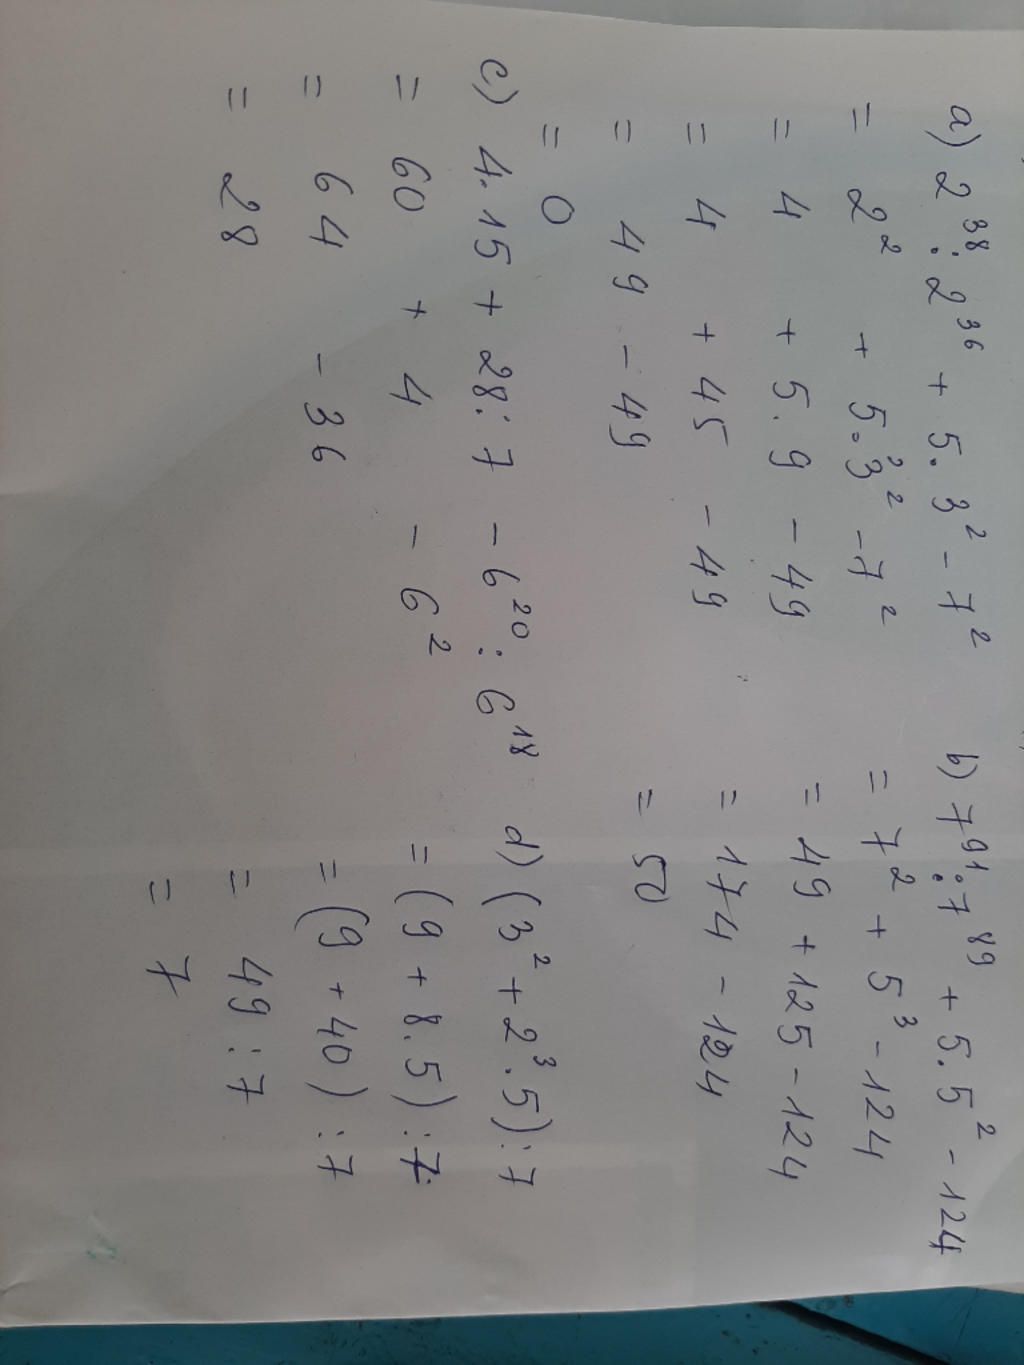 a) 2³⁸ : 2³⁶ + 5 . 3² - 7²
= 2² + 5 . 3² ² - 7²
= 4 + 5 . 9 - 49
= 4 + 45 - 49
= 49 - 49
= 0
b) 7⁹¹ : 7⁸⁹ + 5 . 5² - 124
= 7² + 5³ - 124
= 49 + 125 - 124
= 174 - 124
= 50
c) 4 . 15 + 28 : 7 - 6²⁰ : 6¹⁸
= 60 + 4 - 6²
= 64 - 36
= 28
d) (3² + 2³ . 5) : 7
= (9 + 8 . 5) : 7
= (9 + 40) : 7
= 49 : 7
= 7